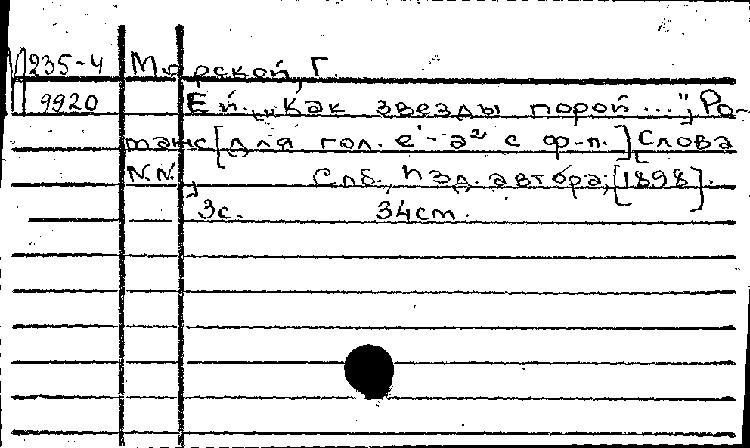 М235-4 Морской, Г.
9920 Ей. „Как звезды порой...", Ро-
манс [для гол. е¹-а² с ф-п.] Слова
N.N. Спб., Изд. автора, [1898].
3с. 34см.